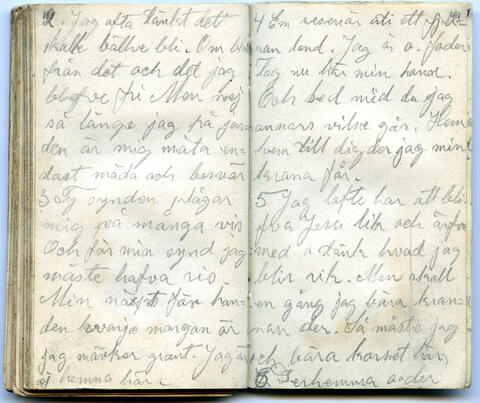 2. Jag ofta tänkt det
skall bättre bli. Om
från det och det jag
blefve fri Men nej
så länge jag på jor
den är mig mäta en-
dast möda och besvär
3 Ty synden plågar
mig på många vis
Och för min synd jag
måste hafva ris
Min näpst för han-
den hvarje morgan är
jag märker grant. Jag är
ej hemma här.
4 En resenär uti ett
man land. Jag är o. fader
Tag nu här min hand.
Och bed mid du jag
annars vilse går. Hem
hem till dig der jag min
krona får.
5 Jag lofte har att bli-
fva Jesu lik och ärfva
med o tänk hvad jag
blir rik. Men skall
en gång jag bära kran-
nan der. Så måste jag
och bära korset här
6 Derhemma o der